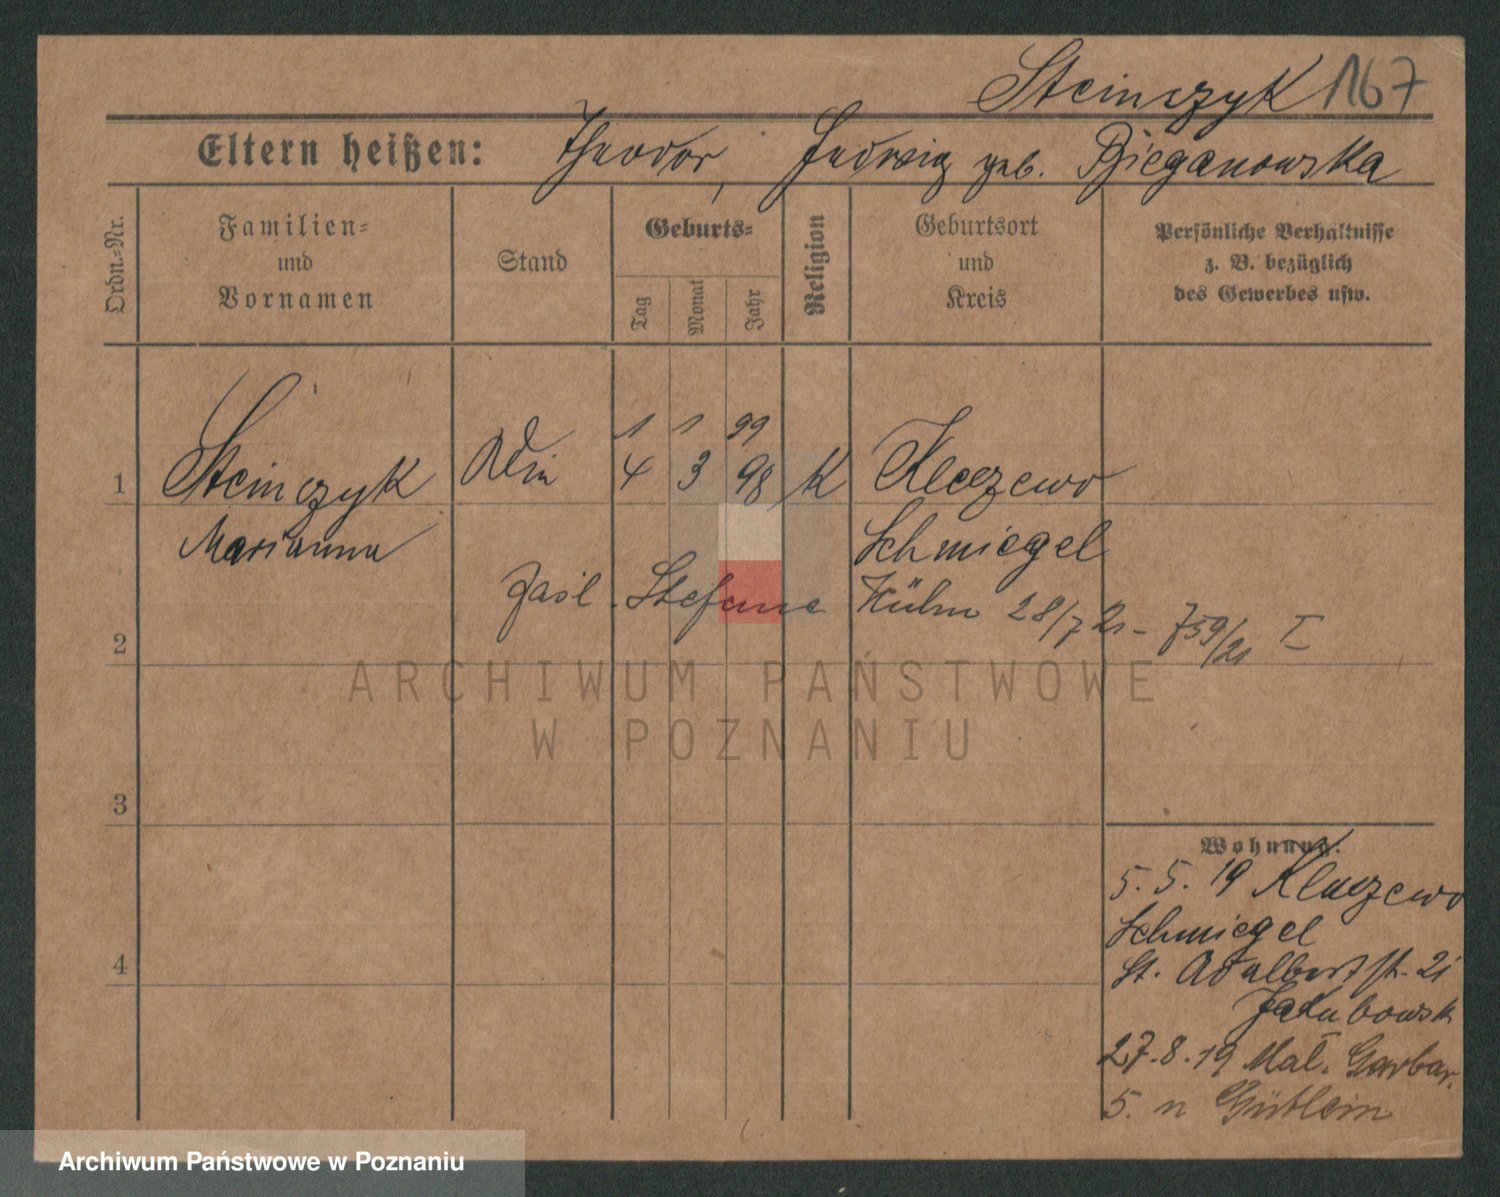 Steinczyk 167
Eltern heißen: Theodor, Hedwig geb. Bieganowska
Ordn.=Nr.
Familien=
und
Vornamen
Stand
Geburts=
Tag
Monat
Jahr
Religion
Geburtsort
und
Kreis
Persönliche Verhältnisse
z. B. bezüglich
des Gewerbes usw.
1 1 99
1 Steinczyk 4 3 98 K Kluczewo
Marianna Schmiegel
Stefana Kühn 28/7 21 - 759/21 I
2
ARCHIWUM PAŃSTWOWE
W POZNANIU
3
Wohnung:
5. 5. 19 Kluczewo
Schmiegel
4
St. Adalbertst. 21
Jakubowsk
27.8.19 Mał. Garbar.
5.
Archiwum Państwowe w Poznaniu